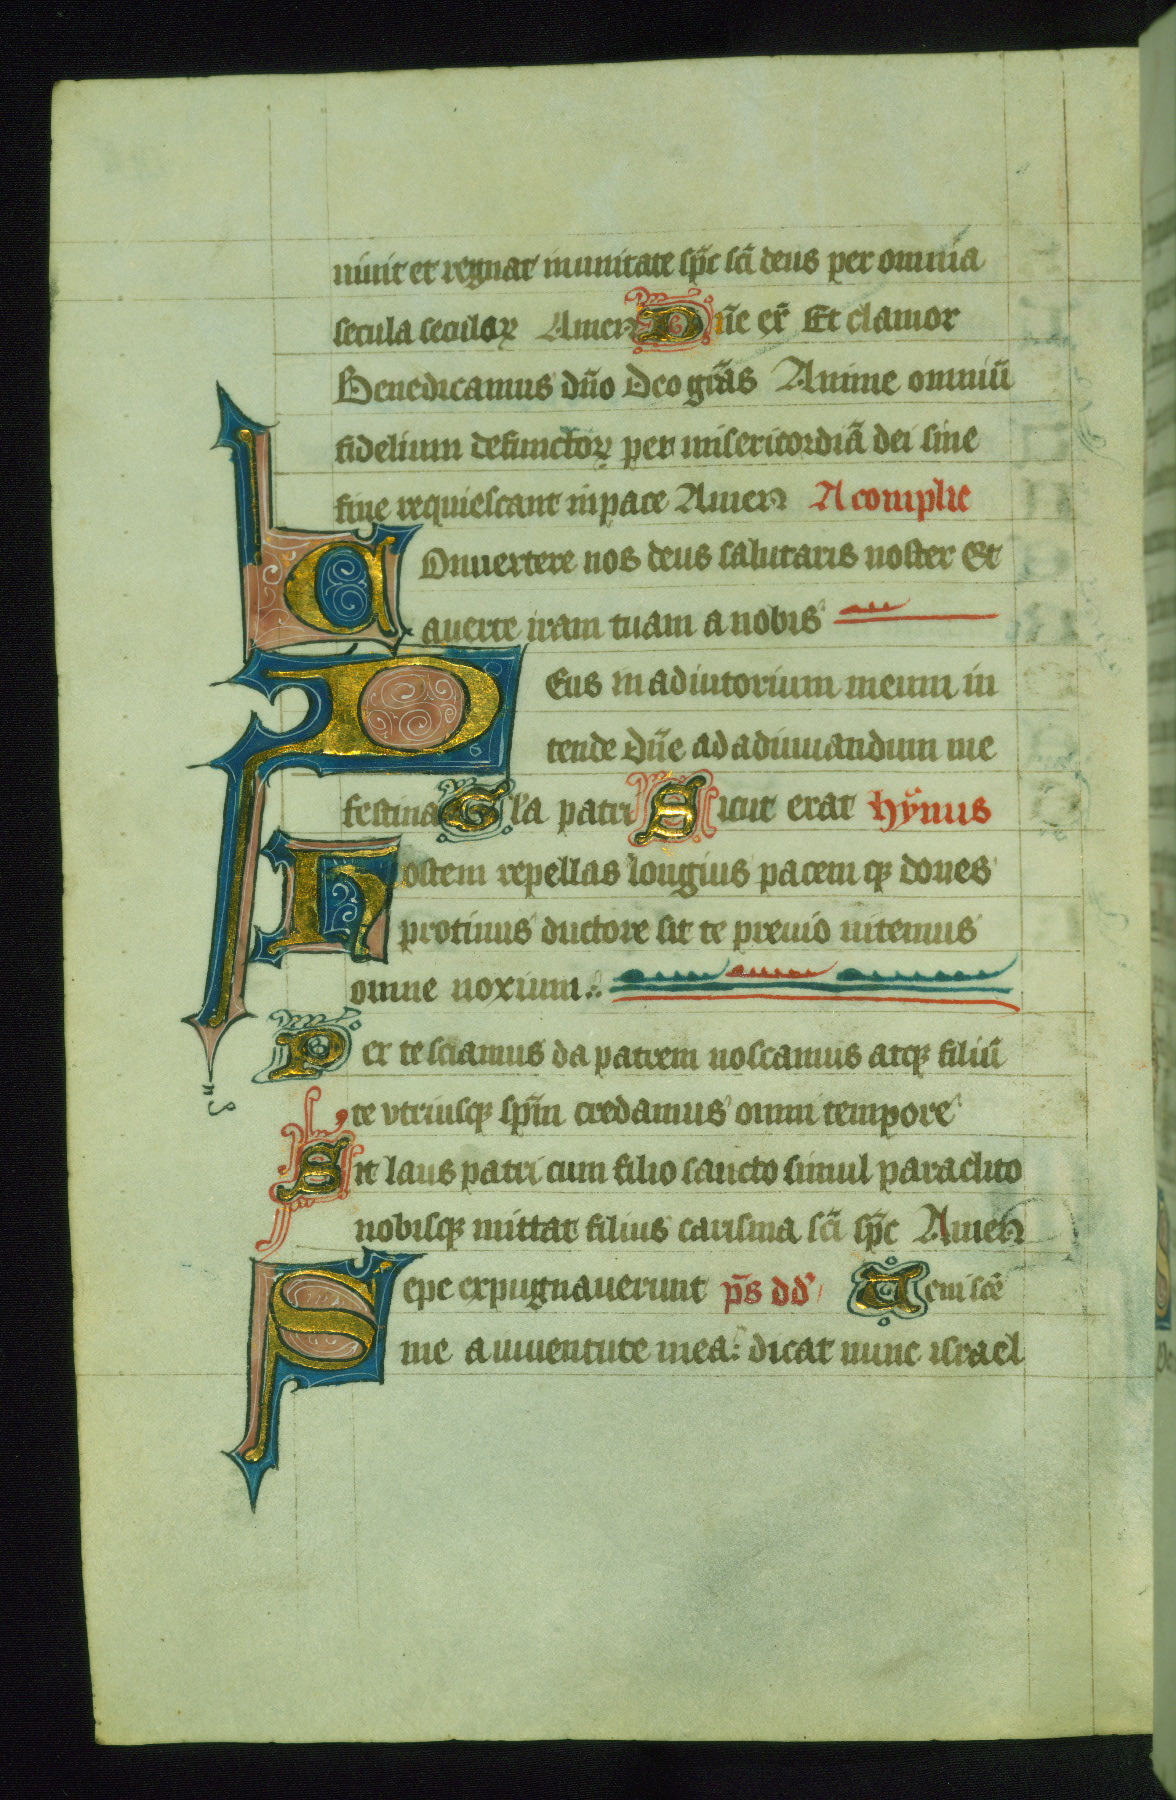 uiuit et regnat in unitate sp̃c sc̃i deus per omnia
secula seculoꝝ Amen Dñe ex̃ Et clamor
Benedicamus dño Deo gr̃as Anime omniũ
fidelium defunctoꝝ per misericordiã dei sine
fine requiescant in pace Amen A complie
Onuertere nos deus salutaris noster Et
auerte iram tuam a nobis
Deus in adiutorium meum in
tende Dñe ad adiuuandum me
festina Gl'a patri Sicut erat hỹnus
hostem repellas longius pacem qꝫ dones
protinus ductore sit te preuio uitemus
omne noxium
Per te sciamus da patrem noscamus atqꝫ filiũ
te vtriusqꝫ sp̃m credamus omni tempore
Sit laus patri cum filio sancto simul paraclito
nobisqꝫ mittat filius carisma sc̃i sp̃c Amen
Sepe expugnauerunt p̃s dd' A
me a iuuentute mea: dicat nunc israel